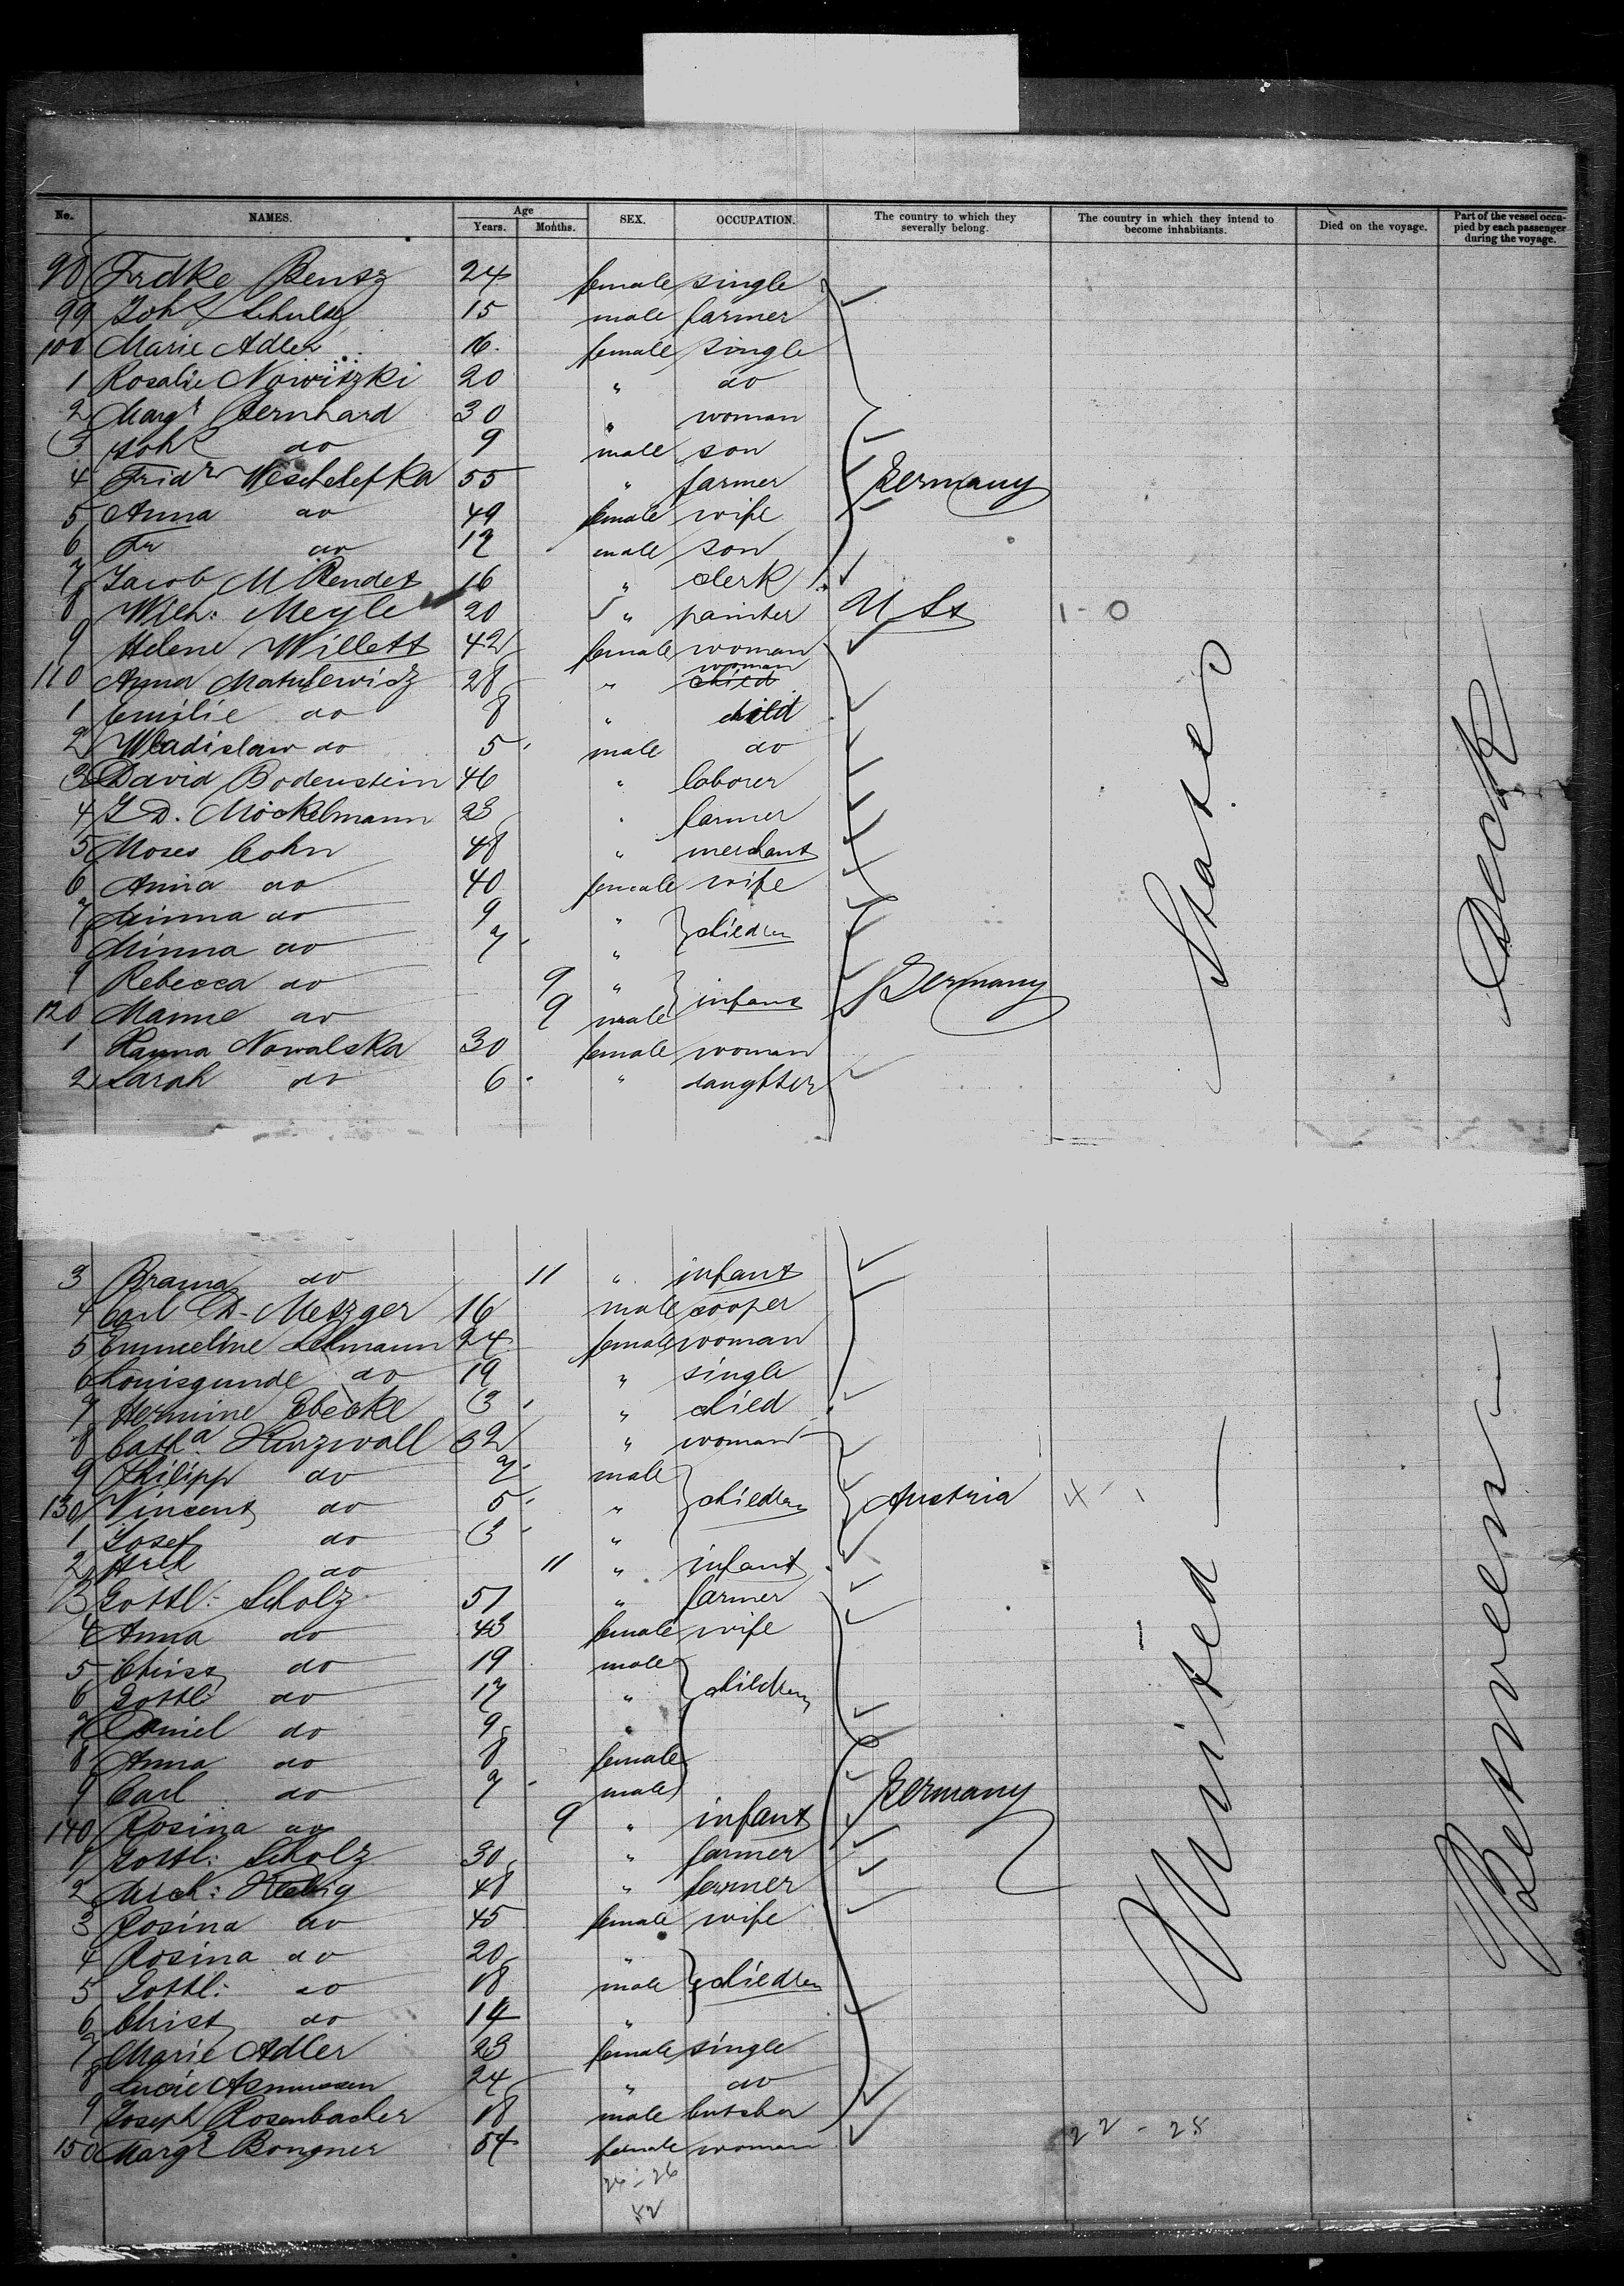 No. NAMES. Age Years. Months. SEX. OCCUPATION. The country to which they severally belong. The country in which they intend to become inhabitants. Died on the voyage. Part of the vessel occupied by each passenger during the voyage.
98 Frdke Bentz 24 female single
99 Joh Schultz 15 male farmer
100 Marie Adler 16 female single
1 Rosalie Nowitzki 20 " do
2 Margr Bernhard 30 " woman
3 Joh do 9 male son
4 Fridr Weschlefka 55 " farmer Germany
5 Anna do 49 female wife
6 Fr do 12 male son
7 Jacob M Rendet 16 " clerk
8 Wilh: Meyle 20 " painter U St 1-0
9 Helene Willett 42 female woman
110 Anna Matulewicz 28 " woman child
1 Emilie do 8 " child
2 Wladislaw do 5 male do
3 David Bodenstein 46 " laborer
4 J D. Möckelmann 23 " farmer
5 Moses Cohn 48 " merchant
6 Anna do 40 female wife
7 do 9 " children
8 Minna do 7 "
9 Rebecca do 9 " infant Germany
120 Manne do 9 male
1 Nowalska 30 female woman
2 Sarah do 6 " daughter
States
Deck
3 Brama do 11 " infant
4 Carl D. Metzger 16 male cooper
5 Emmeline Lehmann 24 female woman
6 Louisgunde do 19 " single
7 Hermine Ebecke 3 " child
8 Catha Kurzwall 32 " woman
9 Philipp do 7 male children
130 Vincent do 5 " Austria
1 Josef do 3 "
2 do 11 " infant
3 Gottl: Scholz 51 " farmer
4 Anna do 43 female wife
5 Christ do 19 male children
6 Gottl: do 17 "
7 Daniel do 9 "
8 Anna do 8 female
9 Carl do 7 male Germany
140 Rosina do 9 " infant
1 Gottl: Scholz 30 " farmer
2 Mich: 48 " farmer
3 Rosina do 45 female wife
4 Rosina do 20 " children
5 Gottl: do 18 male
6 Christ do 14 "
7 Marie Adler 23 female single
8 Lucie Asmussen 24 " do
9 Joseph Rosenbacher 18 male butcher
150 Margr Bongner 54 female woman 22-28
United
Between
26-26
52